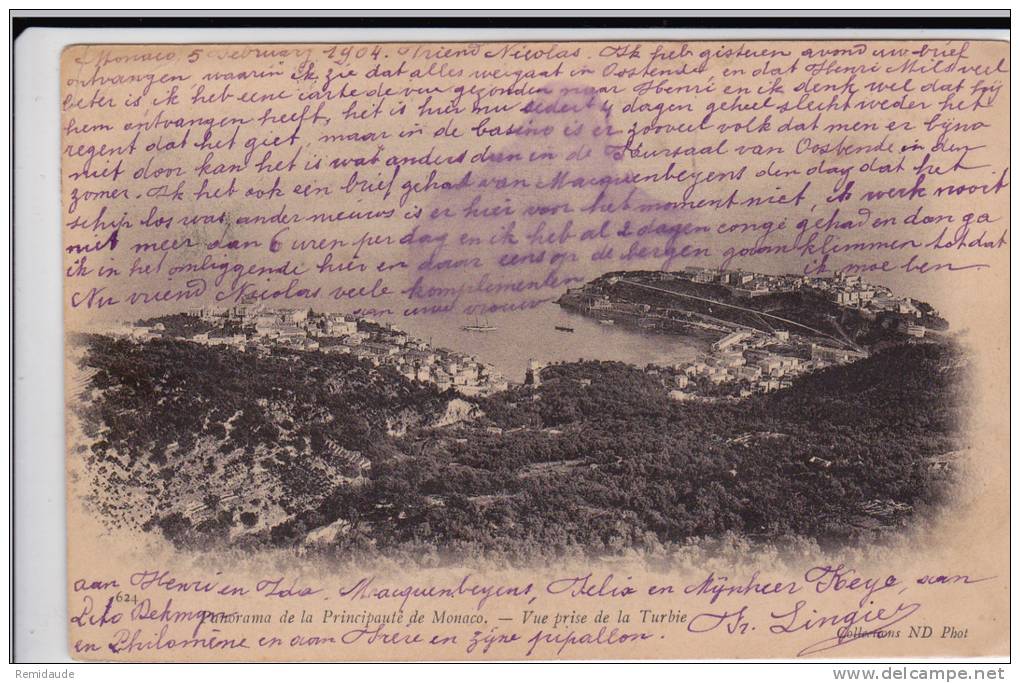 Monaco, 5 February 1904. Vriend Nicolas. Ik heb gisteren avond uw brief
ontvangen waarin ik zie dat alles vergaat in Oostende, en dat Henri Mils veel
beter is ik heb eene carte de vue gezonden naar Henri en ik denk wel dat hij
hem ontvangen heeft, het is hier nu sedert 4 dagen geheel slecht weder het
regent dat het giet, maar in de casino is er zooveel volk dat men er bijna
niet door kan het is wat anders dan in de Kursaal van Oostende in den
zomer. Ik heb ook een brief gehad van Macquenbeyens den dag dat het
schip los was, ander nieuws is er hier voor het moment niet, ik werk nooit
niet meer dan 6 uren per dag en ik heb al 2 dagen congé gehad en dan ga
ik in het omliggende hier en daar eens op de bergen gaan klimmen tot dat
ik moe ben
Nu vriend Nicolas veele komplementen
aan uwe vrouw
aan Henri en Ida. Macquenbeyens, Felix en Mijnheer Keye, aan
Pito Dekmey
en Philomène en aan Frere en zijne pipallon. Fr. Lingier
624
Panorama de la Principauté de Monaco. — Vue prise de la Turbie
Collections ND Phot
Remidaude
www.delcampe.net